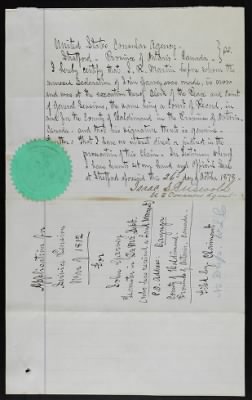 United States Consular Agency
Stratford - Province of Ontario Canada } ss.
I hereby certify that J. R. Martin before whom the
annexed Declaration of John was made, is now
and was at the execution thereof Clerk of the Peace and Court
of General Sessions, the same being a Court of Record, in
and for the County of Haldimand in the Province of Ontario
Canada - and that his signature thereto is genuine.
that I have no interest direct or indirect in the
prosecution of this claim. In testimony whereof
I have hereunto set my hand and official Seal
at Stratford aforesaid this 26th day of 1878
U S Consular Agent
Application for
Service Pension
War of 1812
For
John
Private in
(who has received a Land Warrant)
P.O. address: Cayuga
County of Haldimand
Province of Ontario, Canada
Filed by Claimant